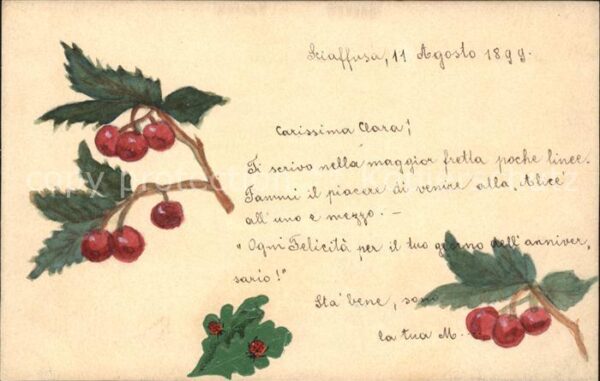 Sciaffusa, 11 Agosto 1899.
Carissima Clara!
Ti scrivo nella maggior fretta poche linee.
Fammi il piacere di venire alla, Alice
all'uno e mezzo. –
"Ogni Felicità per il tuo giorno dell'anniver,
sario!"
Sta' bene, sono
la tua M.